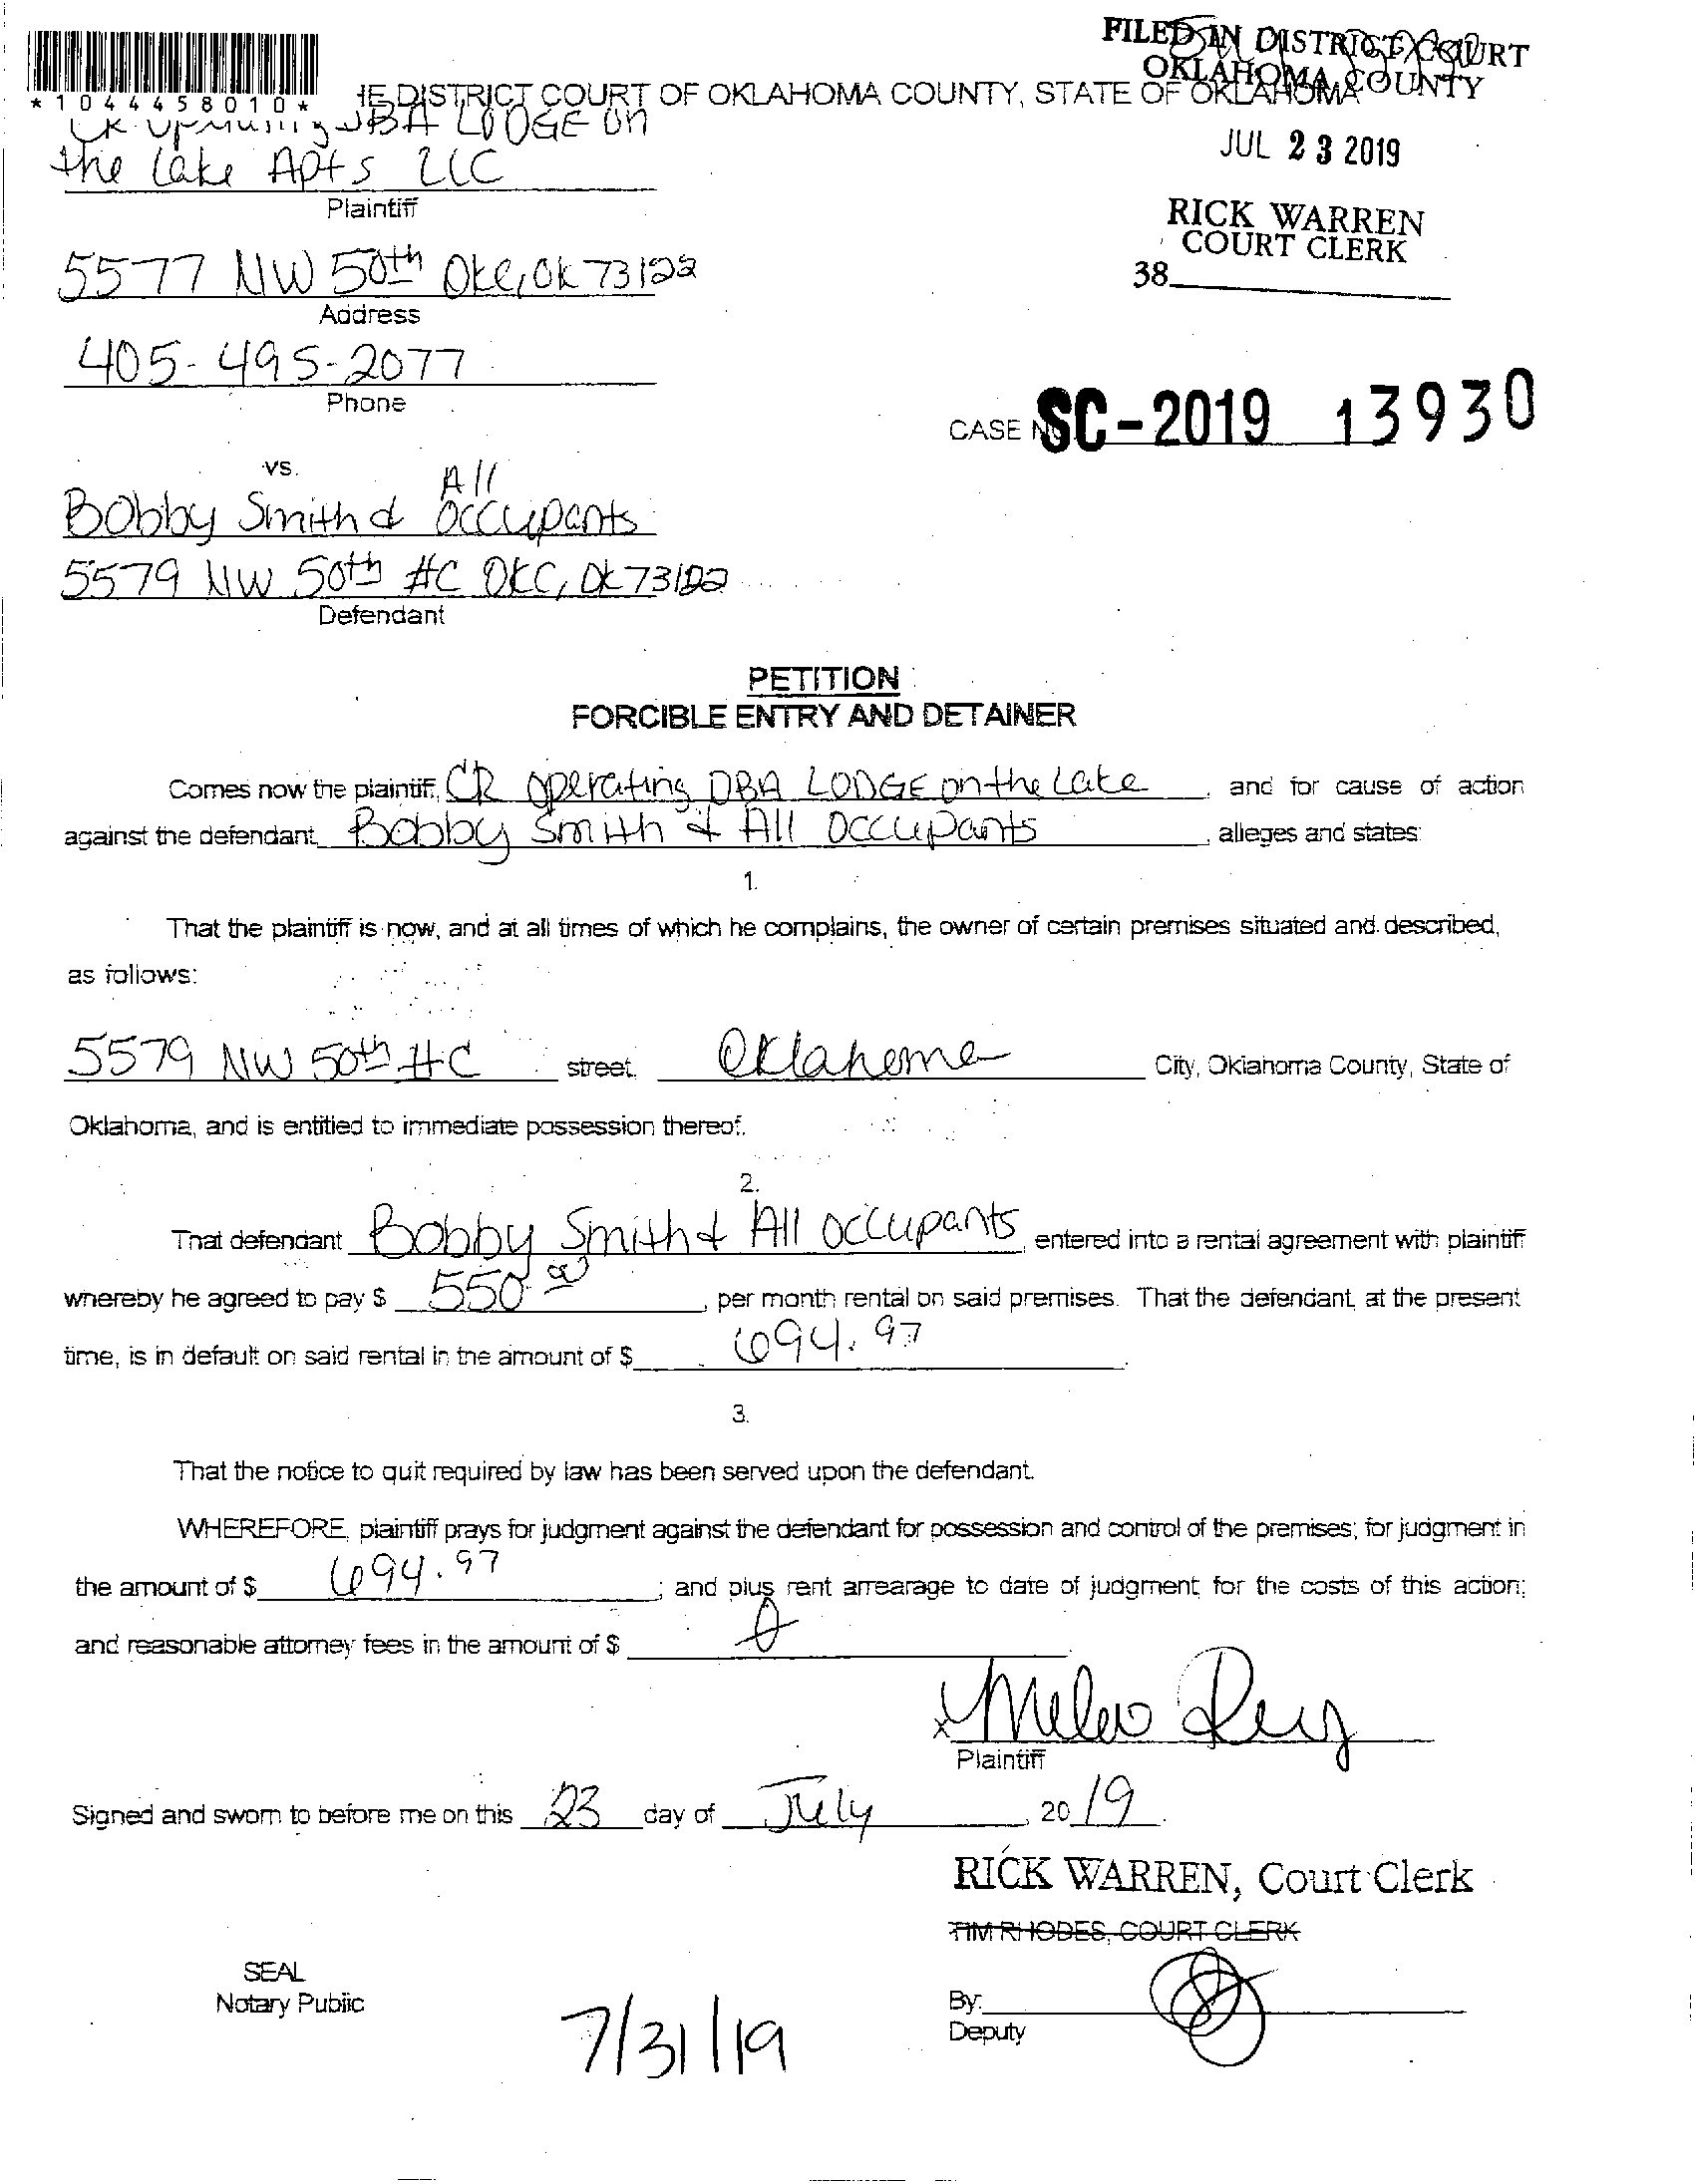 FILED IN DISTRICT COURT
OKLAHOMA COUNTY
*1044458010*
HE DISTRICT COURT OF OKLAHOMA COUNTY, STATE OF OKLAHOMA
JUL 23 2019
DBA LODGE on
the Lake Apts LLC
Plaintiff
RICK WARREN
COURT CLERK
38
5577 NW 50th OKC, OK 73122
Address
405-495-2077
Phone
CASE NO. SC-2019 13930
vs.
Bobby Smith & All Occupants
5579 NW 50th #C OKC, OK 73122
Defendant
PETITION
FORCIBLE ENTRY AND DETAINER
Comes now the plaintiff, CR Operating DBA LODGE on the Lake, and for cause of action
against the defendant, Bobby Smith & All Occupants, alleges and states:
1.
That the plaintiff is now, and at all times of which he complains, the owner of certain premises situated and described,
as follows:
5579 NW 50th #C street, Oklahoma City, Oklahoma County, State of
Oklahoma, and is entitled to immediate possession thereof.
2.
That defendant Bobby Smith & All occupants, entered into a rental agreement with plaintiff
whereby he agreed to pay $ 550.00, per month rental on said premises. That the defendant, at the present
time, is in default on said rental in the amount of $ 694.97.
3.
That the notice to quit required by law has been served upon the defendant.
WHEREFORE, plaintiff prays for judgment against the defendant for possession and control of the premises; for judgment in
the amount of $ 694.97; and plus rent arrearage to date of judgment, for the costs of this action;
and reasonable attorney fees in the amount of $
Plaintiff
Signed and sworn to before me on this 23 day of July, 2019.
RICK WARREN, Court Clerk
TIM RHODES, COURT CLERK
SEAL
Notary Public
By:
Deputy
7/31/19